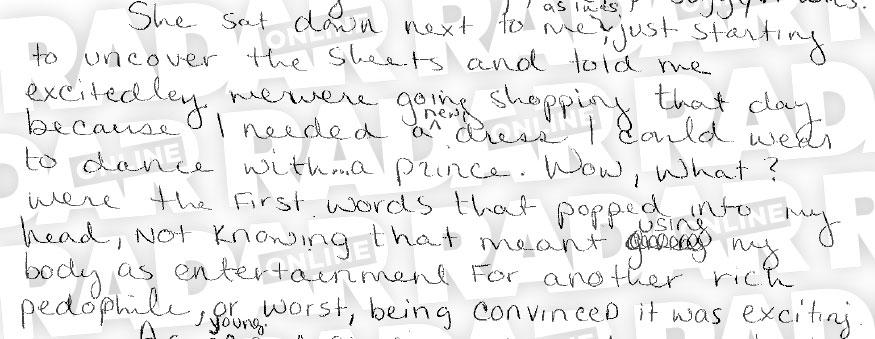 as I was
She sat down next to me, just starting
to uncover the sheets and told me
excitedley wewere going shopping that day
because I needed a new dress I could wear
to dance with...a prince. Wow, what?
were the First words that popped into my
head, Not Knowing that meant using my
body as entertainment For another rich
pedophile, or worst, being convinced it was exciting.
young
RADAR ONLINE